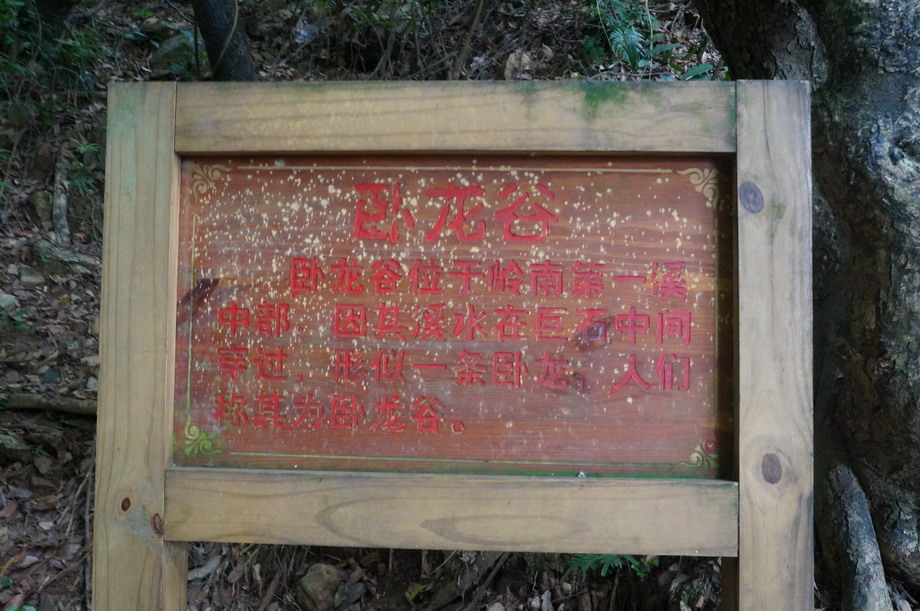 卧龙谷
卧龙谷位于岭南第一溪
中部，因其溪水在巨石中间
穿过，形似一条卧龙，人们
称其为卧龙谷。